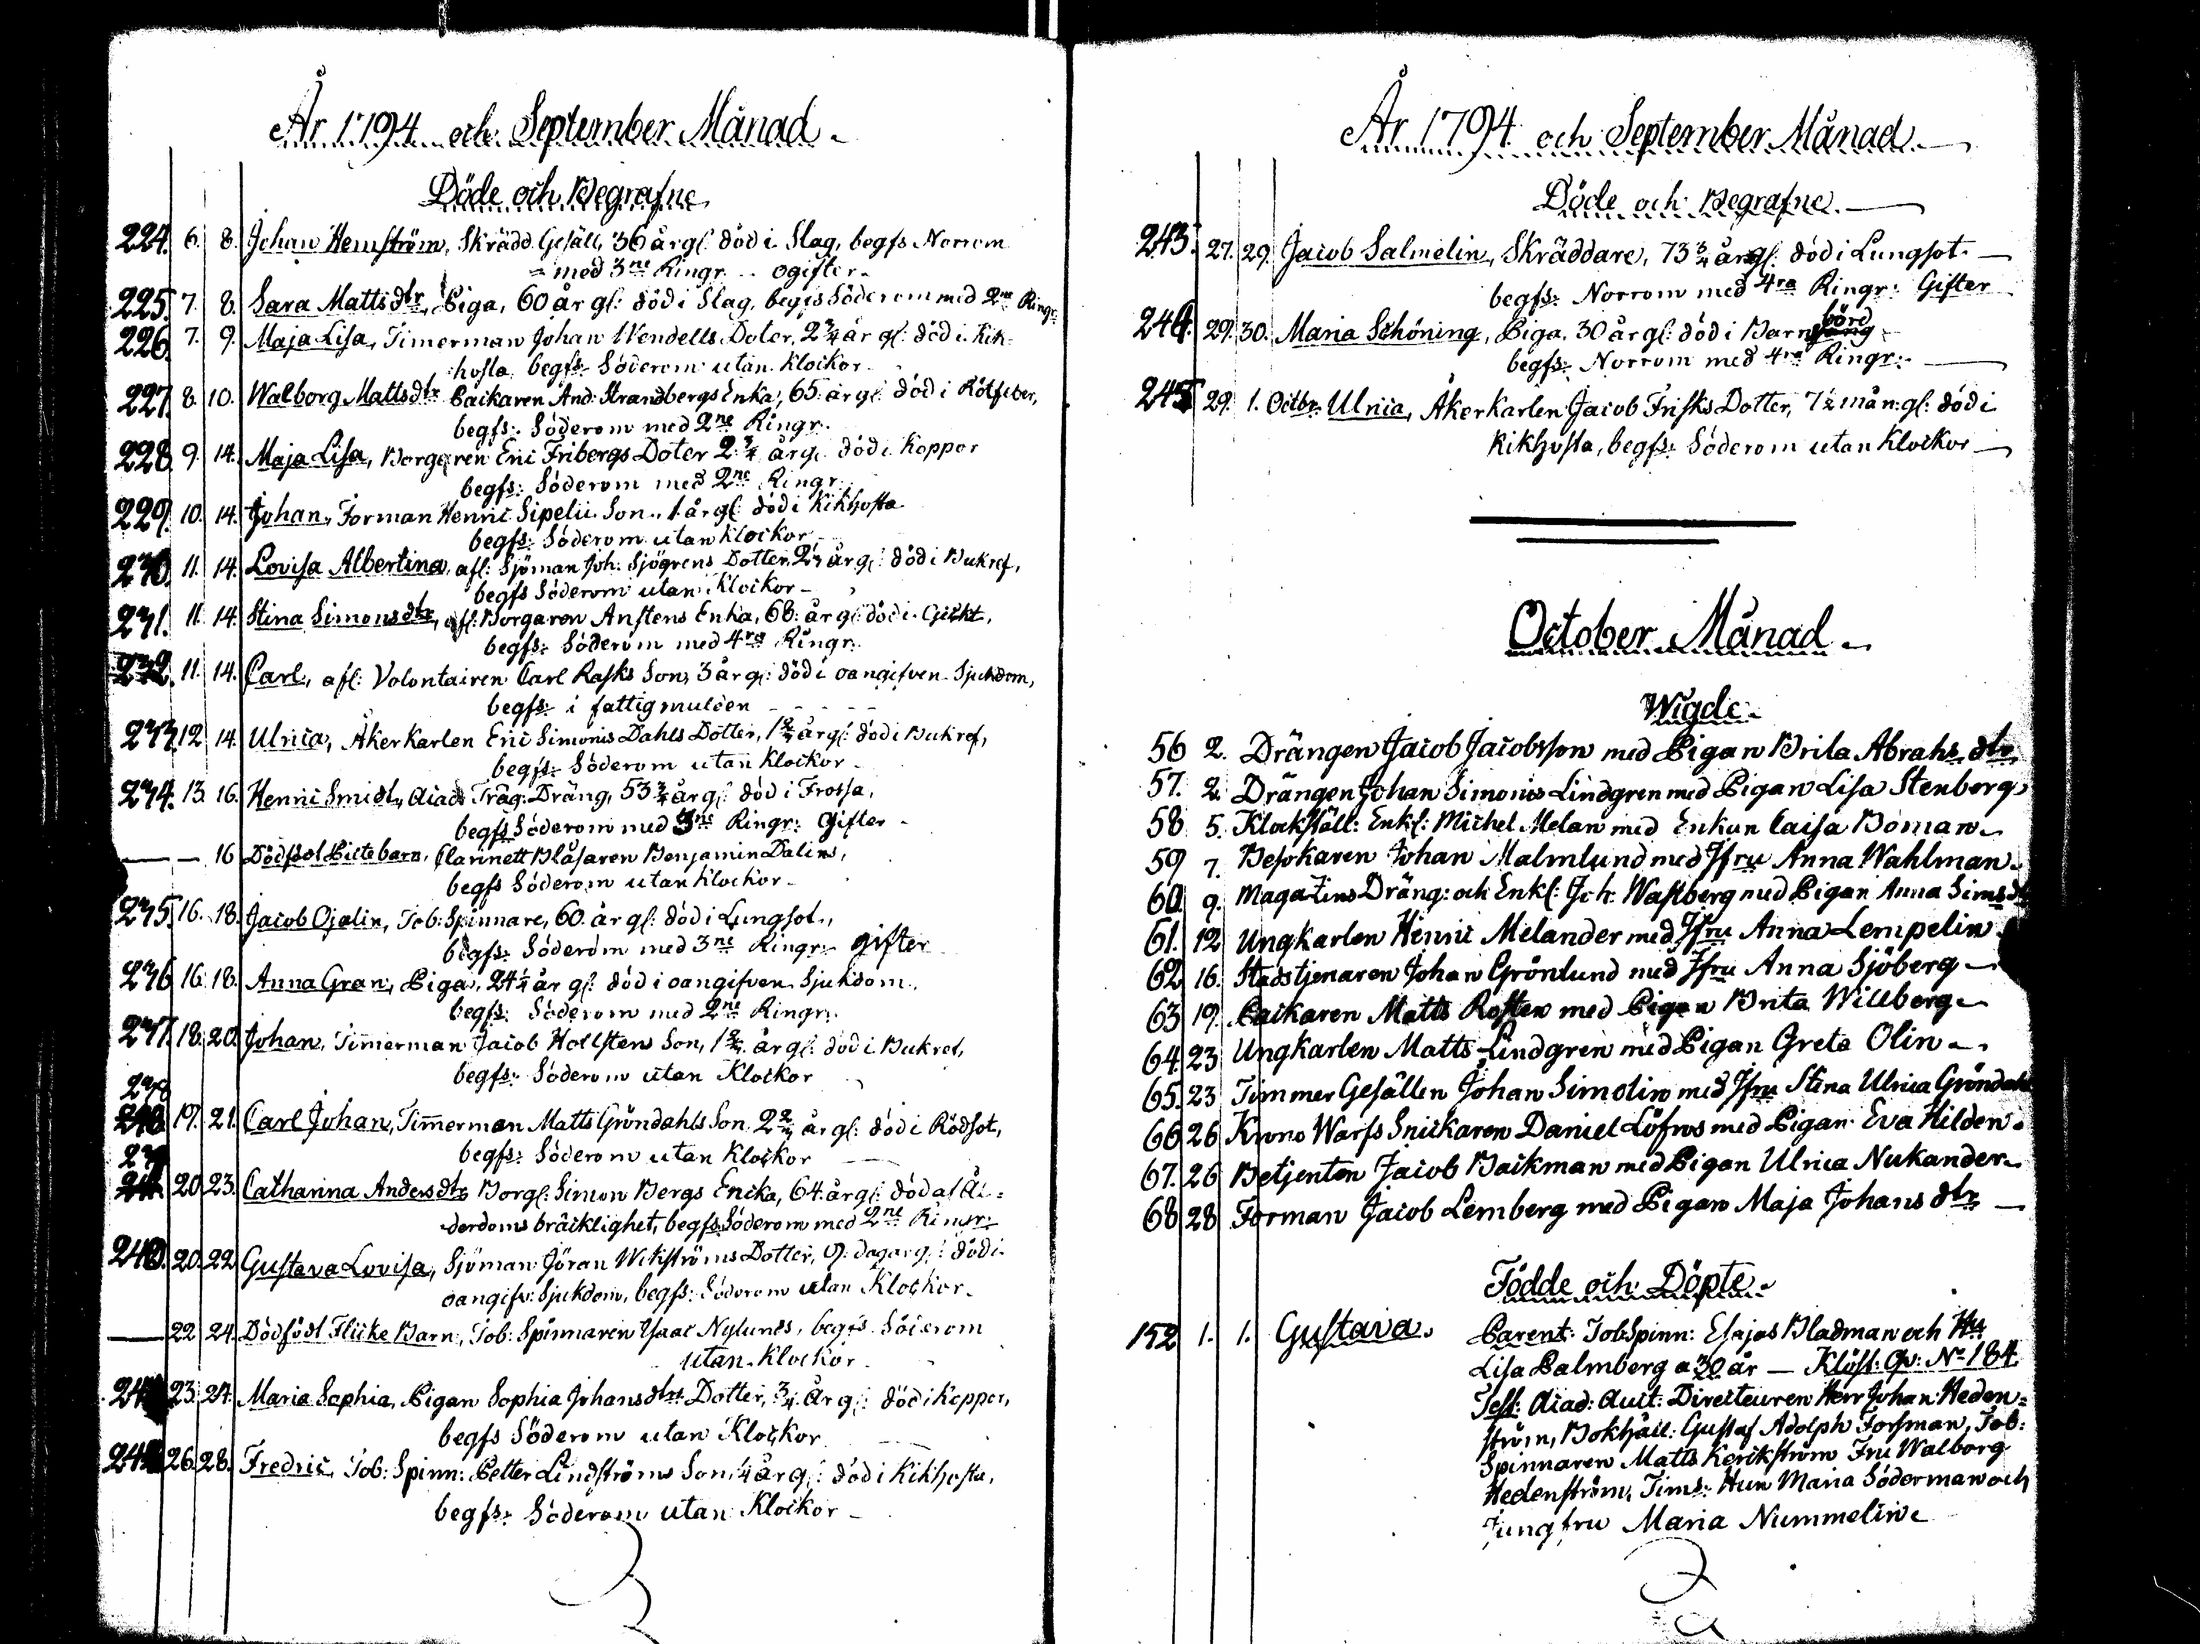 År 1794. och September Månad.
Döde och Begrafne
224. 6. 8. Johan Hemström, Skrädd Gesäll, 36 år gl: död i Slag, begfs Norrom
med 3ne Ringr. ogifter.
225. 7 8. Sara Matts dtr, Piga, 60 år gl: död i Slag, begfs Söderom med 2ne Ringr:
226. 7. 9. Maja Lisa, Timerman Johan Wendells Doter, 2 3/4 år gl: död i Kik-
hosta begfs. Söderom utan klockor.
227. 8. 10. Walborg Matts dtr Packaren And: Strandbergs Enka, 65 år gl: död i Rötfeber,
begfs: Söderom med 2ne Ringr.
228. 9. 14. Maja Lisa, Borgaren Eric Fribergs Doter 2 3/4 år gl. död i Koppor
begfs: Söderom med 2ne Ringr.
229. 10. 14. Johan, Forman Henric Sipelii Son, 1 år gl: död i Kikhosta
begfs: Söderom utan klockor
230. 11. 14. Lovisa Albertina, afl: Sjöman Joh: Sjögrens Dotter, år gl: död i Bukref,
begfs Söderom utan Klockor
231. 11. 14. Stina Simons dtr, afl: Borgaren Anstens Enka, 68 år gl: död i Gickt,
begfs: Söderom med 4ra Ringr.
232. 11. 14. Carl, afl: Volontairen Carl Rasks Son, 3 år gl: död i oangifven Sjukdom,
begfs: i fattigmullen
233. 12 14. Ulrica, Åkerkarlen Eric Simonis Dahls Dotter, år gl: död i Bukref,
begfs: Söderom utan Klockor
234. 13. 16. Henric Smidt, Acad: Träg: Dräng, 53 3/4 år gl: död i Frossa,
begfs Söderom med 3ne Ringr: Gifter
16 Dödfödt Piltebarn, Clarinett Blåsaren Benjamin Dalins,
begfs Söderom utan Klockor
235. 16. 18. Jacob Ojalin, Tob: Spinnare, 60. år gl: död i Lungsot,
begfs: Söderom med 3ne Ringr: gifter
236 16. 18. Anna Gran, Piga, 24 1/4 år gl: död i oangifven Sjukdom,
begfs: Söderom med 2ne Ringr:
237. 18. 20. Johan, Timerman Jacob Hollstens Son, år gl: död i Bukref,
begfs: Söderom utan Klockor
238
19. 21. Carl Johan, Timerman Matts Gröndahls Son år gl: död i Rödsot,
begfs: Söderom utan Klockor
239
20. 23. Catharina Anders dtr Borgl: Simon Bergs Encka, 64 år gl: död af Ål-
derdoms bräcklighet, begfs Söderom med 2ne Ringr:
240. 20. 22. Gustava Lovisa, Sjöman Jöran Wikströms Dotter, 9. dagar gl: död i
oangifv: Sjukdom, begfs: Söderom utan Klockor.
22 24. Dödfödt Flicke Barn, Tob: Spinnaren Isaac Nylunds, begfs Söderom
utan Klockor
241 23. 24. Maria Sophia, Pigan Sophia Johans dtrs Dotter, 3/4 år gl: död i Koppor,
begfs Söderom utan Klockor
242 26. 28. Fredric, Tob: Spinn: Petter Lindströms Son, 1/4 år gl: död i Kikhosta,
begfs: Söderom utan Klockor
År 1794. och September Månad.
Döde och Begrafne.
243. 27. 29. Jacob Salmelin, Skräddare, 73 3/4 år gl: död i Lungsot.
begfs: Norrom med 4ra Ringr: Gifter
244. 29. 30. Maria Schöning, Piga, 30 år gl: död i Barnsbörd
begfs: Norrom med 4ra Ringr:
245 29. 1. Octbr. Ulrica, Åkerkarlen Jacob Frisks Dotter, 7 1/2 mån: gl: död i
Kikhosta, begfs: Söderom utan Klockor
October Månad.
Wigde.
56 2. Drängen Jacob Jacobsson med Pigan Brita Abrahs dtr
57. 2. Drängen Johan Simonis Lindgren med Pigan Lisa Stenberg
58 5. Klockställ: Enkl: Michel Melan med Enkan Caisa Boman
59 7. Besökaren Johan Malmlund med Jfru Anna Wahlman.
60 9. Magazins Dräng: och Enkl: Joh: Wastberg med Pigan Anna Sims dtr
61. 12 Ungkarlen Henric Melander med Jfru Anna Lempelin
62 16. Stadstjenaren Johan Grönlund med Jfru Anna Sjöberg
63 19. Packaren Matts Rosten med Pigan Brita Willberg
64 23 Ungkarlen Matts Lindgren med Pigan Greta Olin
65. 23 Timmer Gesällen Johan Simolin med Jfru Stina Ulrica Gröndahl
66 26 Krono Warfs Snickaren Daniel Löfros med Pigan Eva Hilden.
67. 26 Betjenten Jacob Backman med Pigan Ulrica Nukander
68 28 Forman Jacob Lemberg med Pigan Maja Johans dtr
Födde och Döpte.
152 1. 1. Gustava. Parent: Tob Spinn: Esajas Bladman och Hu
Lisa Palmberg a 30 år — Klöst: Qv: No 184.
Test: Acad: Auct: Directeuren Herr Johan Heden-
ström, Bokhåll: Gustaf Adolph Forsman, Tob:
Spinnaren Matts Kerikström Fru Walborg
Hedenström, Tims: Hun Maria Söderman och
Jungfru Maria Nummelin